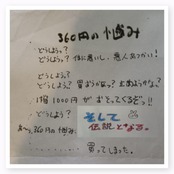 360円の悩み
どうしよう。?
どうしよう。? 体に悪いし、悪人あつかい!
どうしよう。?
どうしよう。? 買おうかなっ? 止めようかな?
1箱 1000円が おそってくるぞっ!!
どうしよう。
そして
伝説となる。
あ〜、360円の悩み
買ってしまった。